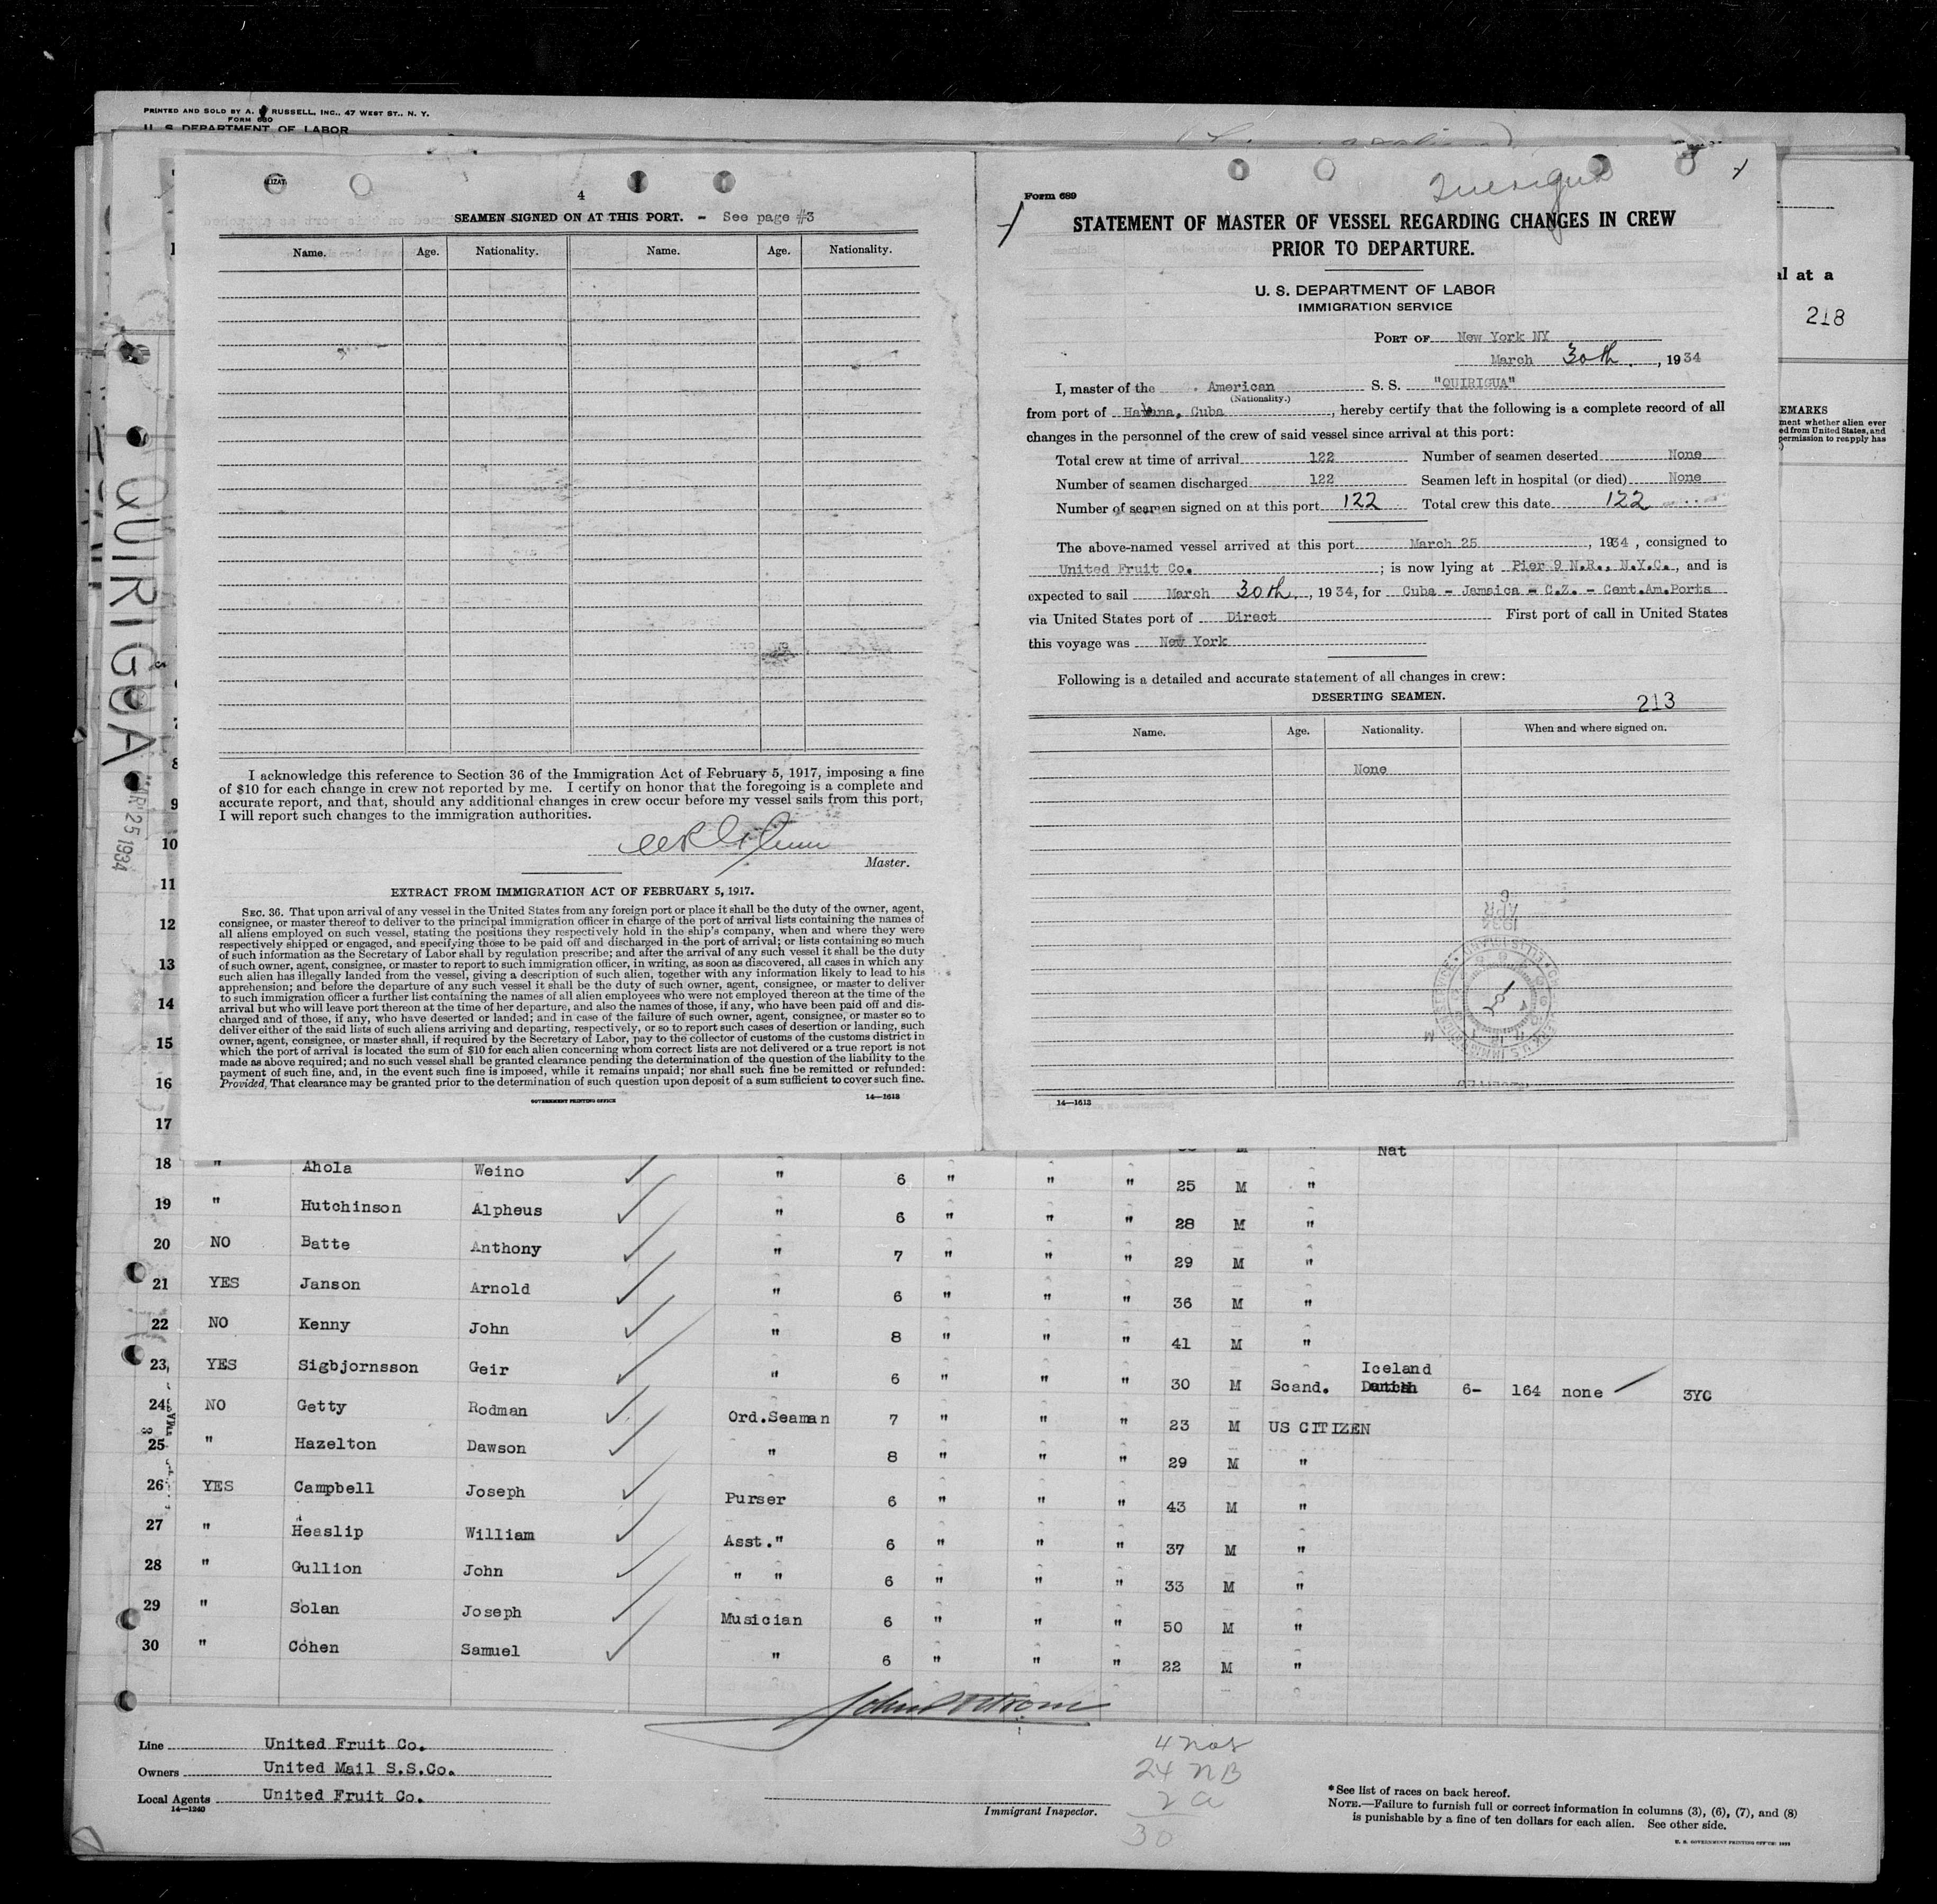 PRINTED AND SOLD BY A. RUSSELL, INC., 47 WEST ST., N. Y.
FORM 680
U. S. DEPARTMENT OF LABOR
4
SEAMEN SIGNED ON AT THIS PORT. - See page #3
Name. Age. Nationality. Name. Age. Nationality.
I acknowledge this reference to Section 36 of the Immigration Act of February 5, 1917, imposing a fine
of $10 for each change in crew not reported by me. I certify on honor that the foregoing is a complete and
accurate report, and that, should any additional changes in crew occur before my vessel sails from this port,
I will report such changes to the immigration authorities.
Master.
EXTRACT FROM IMMIGRATION ACT OF FEBRUARY 5, 1917.
SEC. 36. That upon arrival of any vessel in the United States from any foreign port or place it shall be the duty of the owner, agent,
consignee, or master thereof to deliver to the principal immigration officer in charge of the port of arrival lists containing the names of
all aliens employed on such vessel, stating the positions they respectively hold in the ship's company, when and where they were
respectively shipped or engaged, and specifying those to be paid off and discharged in the port of arrival; or lists containing so much
of such information as the Secretary of Labor shall by regulation prescribe; and after the arrival of any such vessel it shall be the duty
of such owner, agent, consignee, or master to report to such immigration officer, in writing, as soon as discovered, all cases in which any
such alien has illegally landed from the vessel, giving a description of such alien, together with any information likely to lead to his
apprehension; and before the departure of any such vessel it shall be the duty of such owner, agent, consignee, or master to deliver
to such immigration officer a further list containing the names of all alien employees who were not employed thereon at the time of the
arrival but who will leave port thereon at the time of her departure, and also the names of those, if any, who have been paid off and dis-
charged and of those, if any, who have deserted or landed; and in case of the failure of such owner, agent, consignee, or master so to
deliver either of the said lists of such aliens arriving and departing, respectively, or so to report such cases of desertion or landing, such
owner, agent, consignee, or master shall, if required by the Secretary of Labor, pay to the collector of customs of the customs district in
which the port of arrival is located the sum of $10 for each alien concerning whom correct lists are not delivered or a true report is not
made as above required; and no such vessel shall be granted clearance pending the determination of the question of the liability to the
payment of such fine, and, in the event such fine is imposed, while it remains unpaid; nor shall such fine be remitted or refunded:
Provided, That clearance may be granted prior to the determination of such question upon deposit of a sum sufficient to cover such fine.
GOVERNMENT PRINTING OFFICE 14—1613
Form 689
Quirigua
STATEMENT OF MASTER OF VESSEL REGARDING CHANGES IN CREW
PRIOR TO DEPARTURE.
U. S. DEPARTMENT OF LABOR
IMMIGRATION SERVICE
PORT OF New York NY
March 30th, 1934
I, master of the American S. S. "QUIRIGUA"
(Nationality.)
from port of Havana, Cuba, hereby certify that the following is a complete record of all
changes in the personnel of the crew of said vessel since arrival at this port:
Total crew at time of arrival 122 Number of seamen deserted None
Number of seamen discharged 122 Seamen left in hospital (or died) None
Number of seamen signed on at this port 122 Total crew this date 122
The above-named vessel arrived at this port March 25, 1934, consigned to
United Fruit Co.; is now lying at Pier 9 N.R., N.Y.C., and is
expected to sail March 30th, 1934, for Cuba - Jamaica - C.Z. - Cent.Am.Ports
via United States port of Direct First port of call in United States
this voyage was New York
Following is a detailed and accurate statement of all changes in crew:
DESERTING SEAMEN. 213
Name. Age. Nationality. When and where signed on.
None
14—1613
al at a
218
EMARKS
ment whether alien ever
ed from United States, and
permission to reapply has
QUIRIGUA
25 1934
8
9
10
11
12
13
14
15
16
17 Nat
18 " Ahola Weino " 6 " " " 25 M "
19 " Hutchinson Alpheus " 6 " " " 28 M "
20 NO Batte Anthony " 7 " " " 29 M "
21 YES Janson Arnold " 6 " " " 36 M "
22 NO Kenny John " 8 " " " 41 M "
23 YES Sigbjornsson Geir " 6 " " " 30 M Scand. Iceland 6- 164 none 3YC
24 NO Getty Rodman Ord.Seaman 7 " " " 23 M US CITIZEN
25 " Hazelton Dawson " 8 " " " 29 M "
26 YES Campbell Joseph Purser 6 " " " 43 M "
27 " Heaslip William Asst." 6 " " " 37 M "
28 " Gullion John " " 6 " " " 33 M "
29 " Solan Joseph Musician 6 " " " 50 M "
30 " Cohen Samuel " 6 " " " 22 M "
Line United Fruit Co.
Owners United Mail S.S.Co.
Local Agents United Fruit Co.
14—1240
Immigrant Inspector.
24 NB
30
*See list of races on back hereof.
NOTE.—Failure to furnish full or correct information in columns (3), (6), (7), and (8)
is punishable by a fine of ten dollars for each alien. See other side.